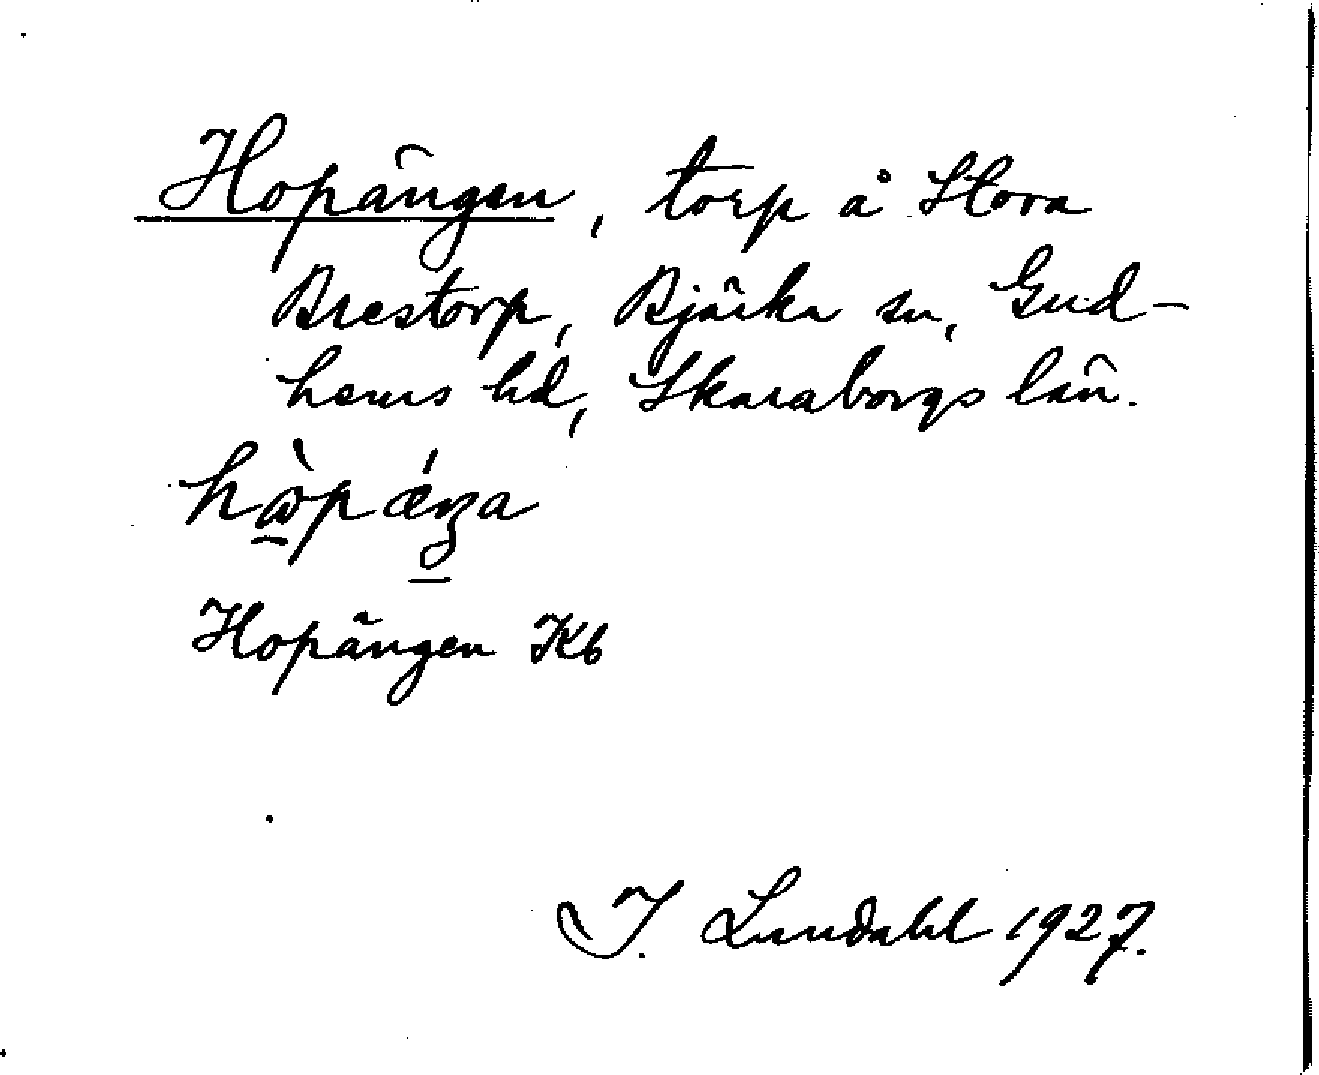 Hopängen, torp å Stora
Brestorp, Bjärka sn, Gud-
hems hd, Skaraborgs län.
Hopängen Kb
I. Lundahl 1927.